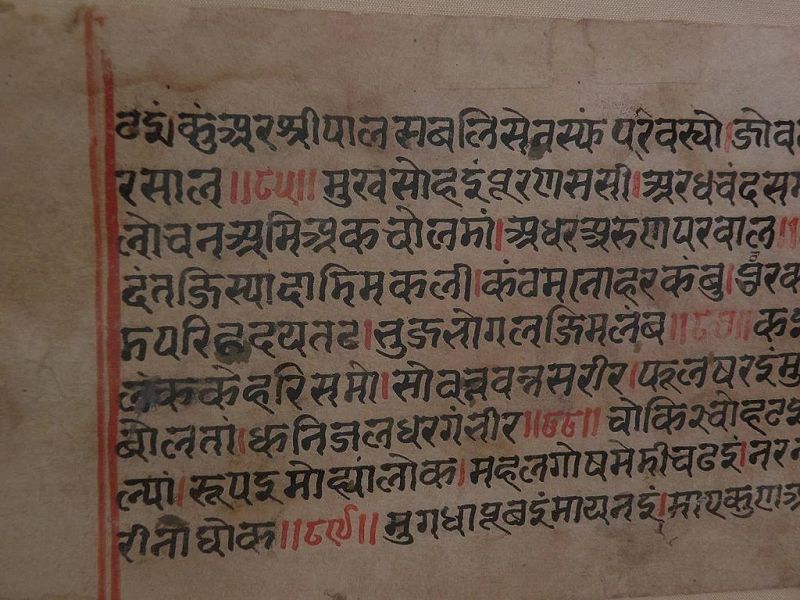 कुंअरश्रीपाल सबलिसेनस्युं परवस्यो।जोव
रसाल॥८५॥मुखसोहइंपूरणससी।अरधचंदसम
लोचनअमिअकचोलमां।अधरअरुणपरवाल॥
दंतजिस्यादाडिमकली।कंठमनोहरकंबु।पुरक
परिहृदयतट।भुजभोगलजिमलंब॥८७॥
लंककेहरिसमो।सोवन्नवन्नसरीर।फूलषरइंमु
बोलतां।ध्वनिजलधरगंभीर॥८८॥चोकिचोहटइ
ल्यां।रूपइमोह्यांलोक।महलगोषमेडीचढइं।नरन
रीनाथोक॥८९॥मुगधापूबइंमायनइं।मायकुणअ